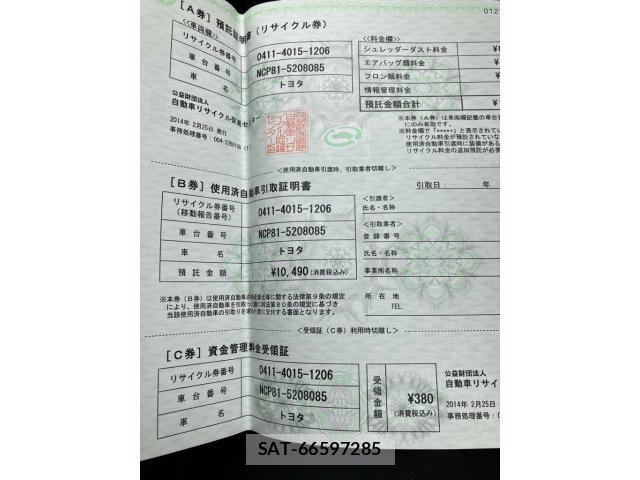 ［A券］預託証明書（リサイクル券）
012
≪車両欄≫
リサイクル券番号 0411-4015-1206
車台番号 NCP81-5208085
車名 トヨタ
≪料金欄≫
シュレッダーダスト料金 ¥
エアバッグ類料金 ¥
フロン類料金 ¥
情報管理料金
預託金額合計 ¥
公益財団法人
自動車リサイクル促進センター
2014年 2月25日 発行
事務処理番号
※本券（A券）は車両欄記載の車台番
にのみ有効です。
※料金欄で「*****」と表示されてい
リサイクル料金が預託されていな
使用済自動車引渡時に装備がある
リサイクル料金の追加預託が必要
＜使用済自動車引渡時、引取業者切離し＞
［B券］使用済自動車引取証明書
引取日： 年
リサイクル券番号
（移動報告番号） 0411-4015-1206
車台番号 NCP81-5208085
車名 トヨタ
預託金額 ¥10,490（消費税込み）
＜引渡者＞
氏名・名称
＜引取業者＞
登録番号
氏名・名称
事業所名称
所在地
TEL.
※本券（B券）は使用済自動車の再資源化等に関する法律第9条の規定
により、使用済自動車を引取った際に同法第80条の規定に基づき
当該使用済自動車の引取りを求めた者に交付する書面となります。
＜受領証（C券）利用時切離し＞
［C券］資金管理料金受領証
リサイクル券番号 0411-4015-1206
車台番号 NCP81-5208085
車名 トヨタ
受領金額 ¥380
（消費税込み）
公益財団法人
自動車リサイ
2014年 2月25日
事務処理番号：
SAT-66597285